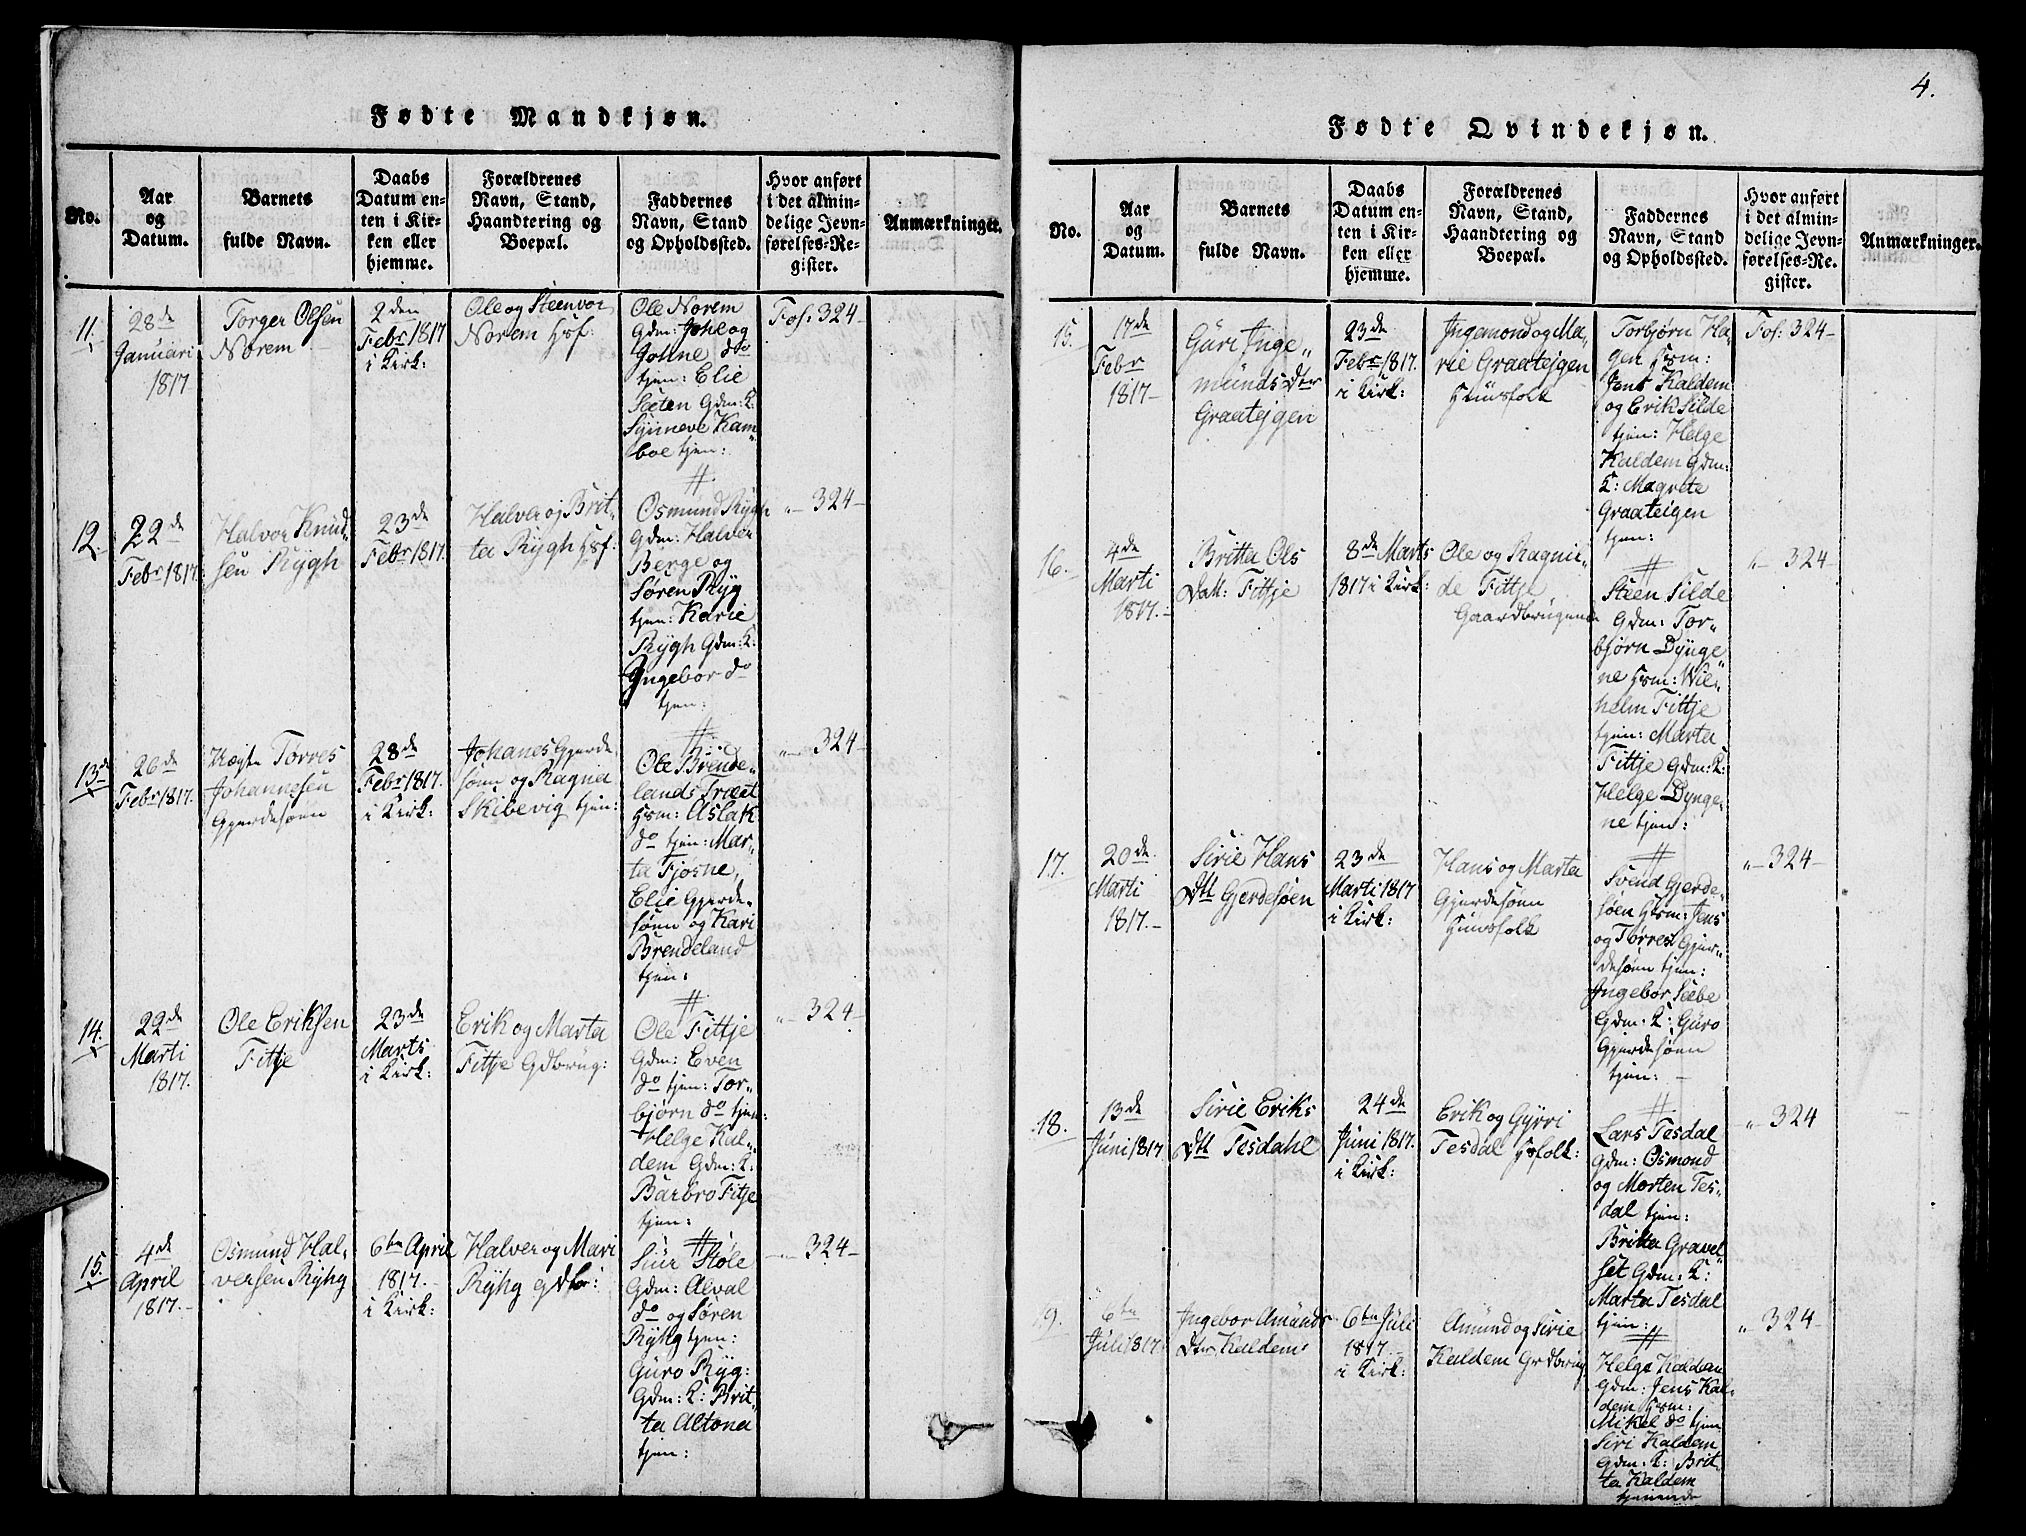 Fødte Mandkjøn.
No.
Aar
og
Datum.
Barnets
fulde Navn.
Daabs
Datum en-
ten i Kir-
ken eller
hjemme.
Forældrenes
Navn, Stand,
Haandtering og
Boepæl.
Faddernes
Navn, Stand
og Opholdssted.
Hvor anført
i det almin-
delige Jevn-
førelses-Re-
gister.
Anmærkninger.
11.
28de
Januari
1817
Torger Olsen
Norem
2den
Febr 1817
i Kirk:
Ole og Steenvor
Norem Hsf:
Ole Norem
Gdm: Johl og
Johne do
tjen: Elie
Sæten Gdm: K:
Synneve Kam„
boe tjen:
Fol: 324
12.
22de
Febr 1817.
Halvor Knud-
sen Rygh
23de
Febr 1817.
Halver og Brit-
ta Rygh Hsf:
Osmund Rygh
Gdm: Halver
Berge og
Søren Ryg
tjen: Karie
Rygh Gdm: K:
Ingebor do
tjen:
„ 324
13de
26de
Febr 1817.
Torres
Johannesen
Gjerdesøen
28de
Febr 1817.
i Kirk:
Johanes Gjerde
søen og Ragna
Skibevig tjen:
Ole Brende„
lands Træet
Hsm: Aslak
do tjen: Mar„
ta Tjøsne,
Elie Gjerde„
søen og Kari
Brendeland
tjen:
„ 324
14.
22de
Marti
1817.
Ole Eriksen
Fittje
23de
Marts
i Kirk:
Erik og Marta
Fittje Gdbrug:
Ole Fittje
Gdm: Even
do tjen: Tor„
bjørn do tjen:
Helge Kal„
dem Gdm: K:
Barbro Fitje
tjen:
„ 324
15.
4de
April
1817.
Osmund Hal-
versen Ryhg
6te April
1817.
i Kirk:
Halver og Mari
Ryhg
Siur Støle
Gdm: Alval
do og Søren
Ryhg tjen:
Guro Ryg:
Gdm: K: Brit„
ta Altona
tjen:
„ 324
4.
Fødte Qvindekjøn.
No.
Aar
og
Datum.
Barnets
fulde Navn.
Daabs
Datum en-
ten i Kir-
ken eller
hjemme.
Forældrenes
Navn, Stand,
Haandtering og
Boepæl.
Faddernes
Navn, Stand
og Opholdssted.
Hvor anført
i det almin-
delige Jevn-
førelses-Re-
gister.
Anmærkninger.
15.
17de
Febr
1817
Guri Inge„
munds Dtr
Graatejgen
23de
Febr 1817.
i Kirk:
Ingemond og Ma„
rie Graatejgen
Huusfolk
Torbjørn Ha„
gen Hsm:
Jens Kaldem
og Erik Silde
tjen: Helge
Kaldem Gdm:
K: Magrete
Graateigen
tjen:
Fol: 324
16.
4de
Marti
1817.
Britta Ols
Datt: Fittje
8de Marts
1817 i Kirk:
Ole og Ragnie„
de Fittje
Gaardbrugende
Steen Silde
Gdm: Tor„
bjørn Dynge
ne Hsm: Wil„
helm Fittje
tjen: Marta
Fittje Gdm: K:
Helge Dynge„
ne tjen:
„ 324
17.
20de
Marti
1817.
Sirie Hans
Dtt Gjerdesøen
23de
Marti 1817
i Kirk:
Hans og Marta
Gjerdesøen
Huusfolk
Svend Gjerde„
søen Hsm: Jens
og Torres Gjer„
desøen tjen:
Ingebor Sæbe
Gdm: K: Guro
Gjerdesøen
tjen:
„ 324
18.
13de
Juni 1817
Sirie Eriks
Dtt Tesdahl
24de
Juni 1817.
i Kirk:
Erik og Gyrri
Tesdal Hsfolk:
Lars Tesdal
Gdm: Osmond
og Morten Tes„
dal tjen:
Britta Gravel
set Gdm: K:
Marta Tesdal
tjen:
„ 324
19.
6te
Juli 1817
Ingebor Amunds
Dtr Kaldem
6te Juli
1817.
i Kirk:
Amund og Sirie
Kaldem Grdbrug
Helge Kaldem
Gdm: Jens Kal„
dem Hsm:
Mikel do tjen
Siri Kaldem
Gdm: K: Brit„
ta Kaldem
tjenende
„ 324